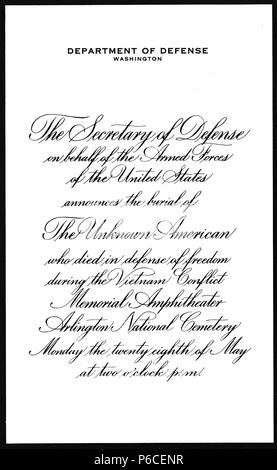 DEPARTMENT OF DEFENSE
WASHINGTON
The Secretary of Defense
on behalf of the Armed Forces
of the United States
announces the burial of
The Unknown American
who died in defense of freedom
during the Vietnam Conflict
Memorial Amphitheater
Arlington National Cemetery
Monday the twenty eighth of May
at two o'clock p.m.
alamy
Image ID: P6CENR